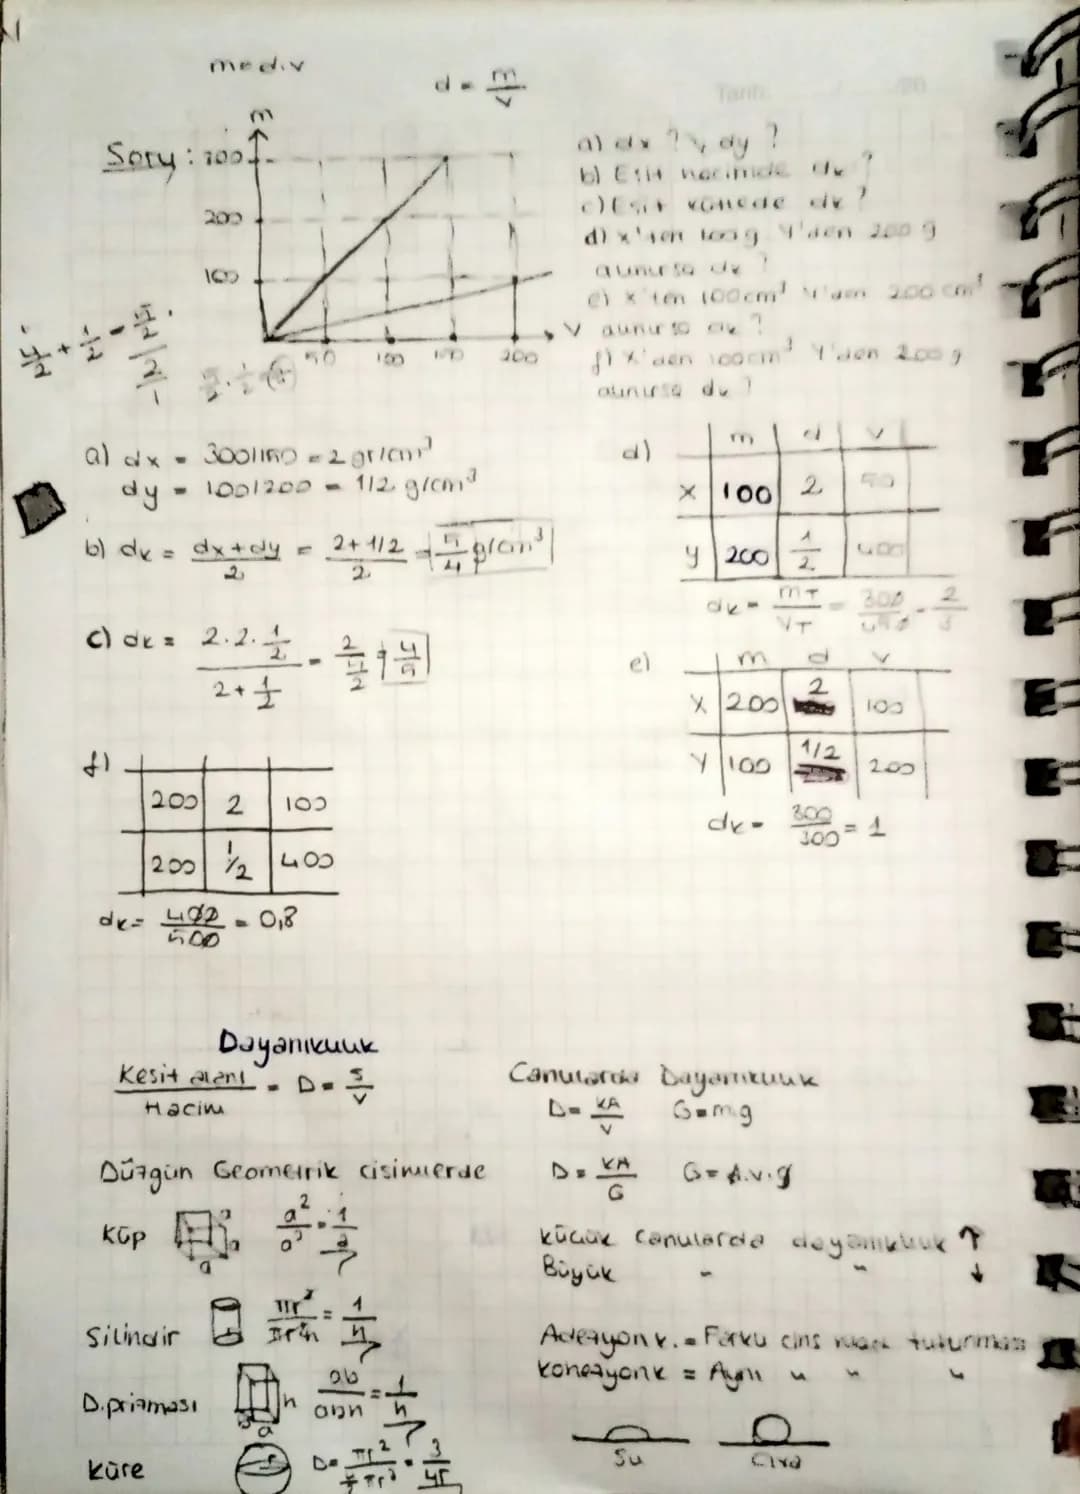 m=d.v
d = m/v
Soru:
m
300
200
100
50 100 150 200 V
a) dx ? , dy ?
b) Eşit hacimde dk ?
c) Eşit kütlede dk ?
d) x'ten 100g Y'den 200 g
alınırsa dk ?
e) x'ten 100cm³ Y'den 200 cm³
alınırsa dk ?
f) X'den 100cm³ Y'den 200 g
alınırsa dk ?
a) dx = 300/150 = 2 gr/cm³
dy = 100/200 = 1/2 g/cm³
b) dk = dx+dy/2 = 2+1/2/2 = 5/4 g/cm³
c) dk = 2.2.1/2 / 2+1/2 = 2/5/2 = 4/5
d)
m d v
X 100 2 50
y 200 1/2 400
dk = mT/VT = 300/450 = 2/3
e)
m d v
X 200 2 100
Y 100 1/2 200
dk = 300/300 = 1
f)
200 2 100
200 1/2 400
dk = 400/500 = 0,8
Dayanıklılık
Kesit alanı/Hacim = D = S/V
Düzgün Geometrik cisimlerde
Küp a a a a²/a³ = 1/a
Silindir πr²/πr²h = 1/h
D.prizması a h ab/abh = 1/h
Küre D= πr²/πr³ = 3/4r
Canlılarda Dayanıklılık
D= kA/V G=mg
D= kA/G G= d.v.g
Küçük canlılarda dayanıklılık ↑
Büyük " " ↓
Adezyon k. = Farklı cins mad. tutunması
Kohezyon k = Aynı " " "
Su Civa